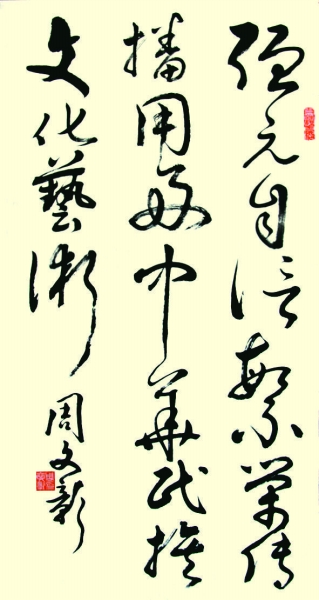 强元自信繁荣传
播用好中华民族
文化艺术
周文彰